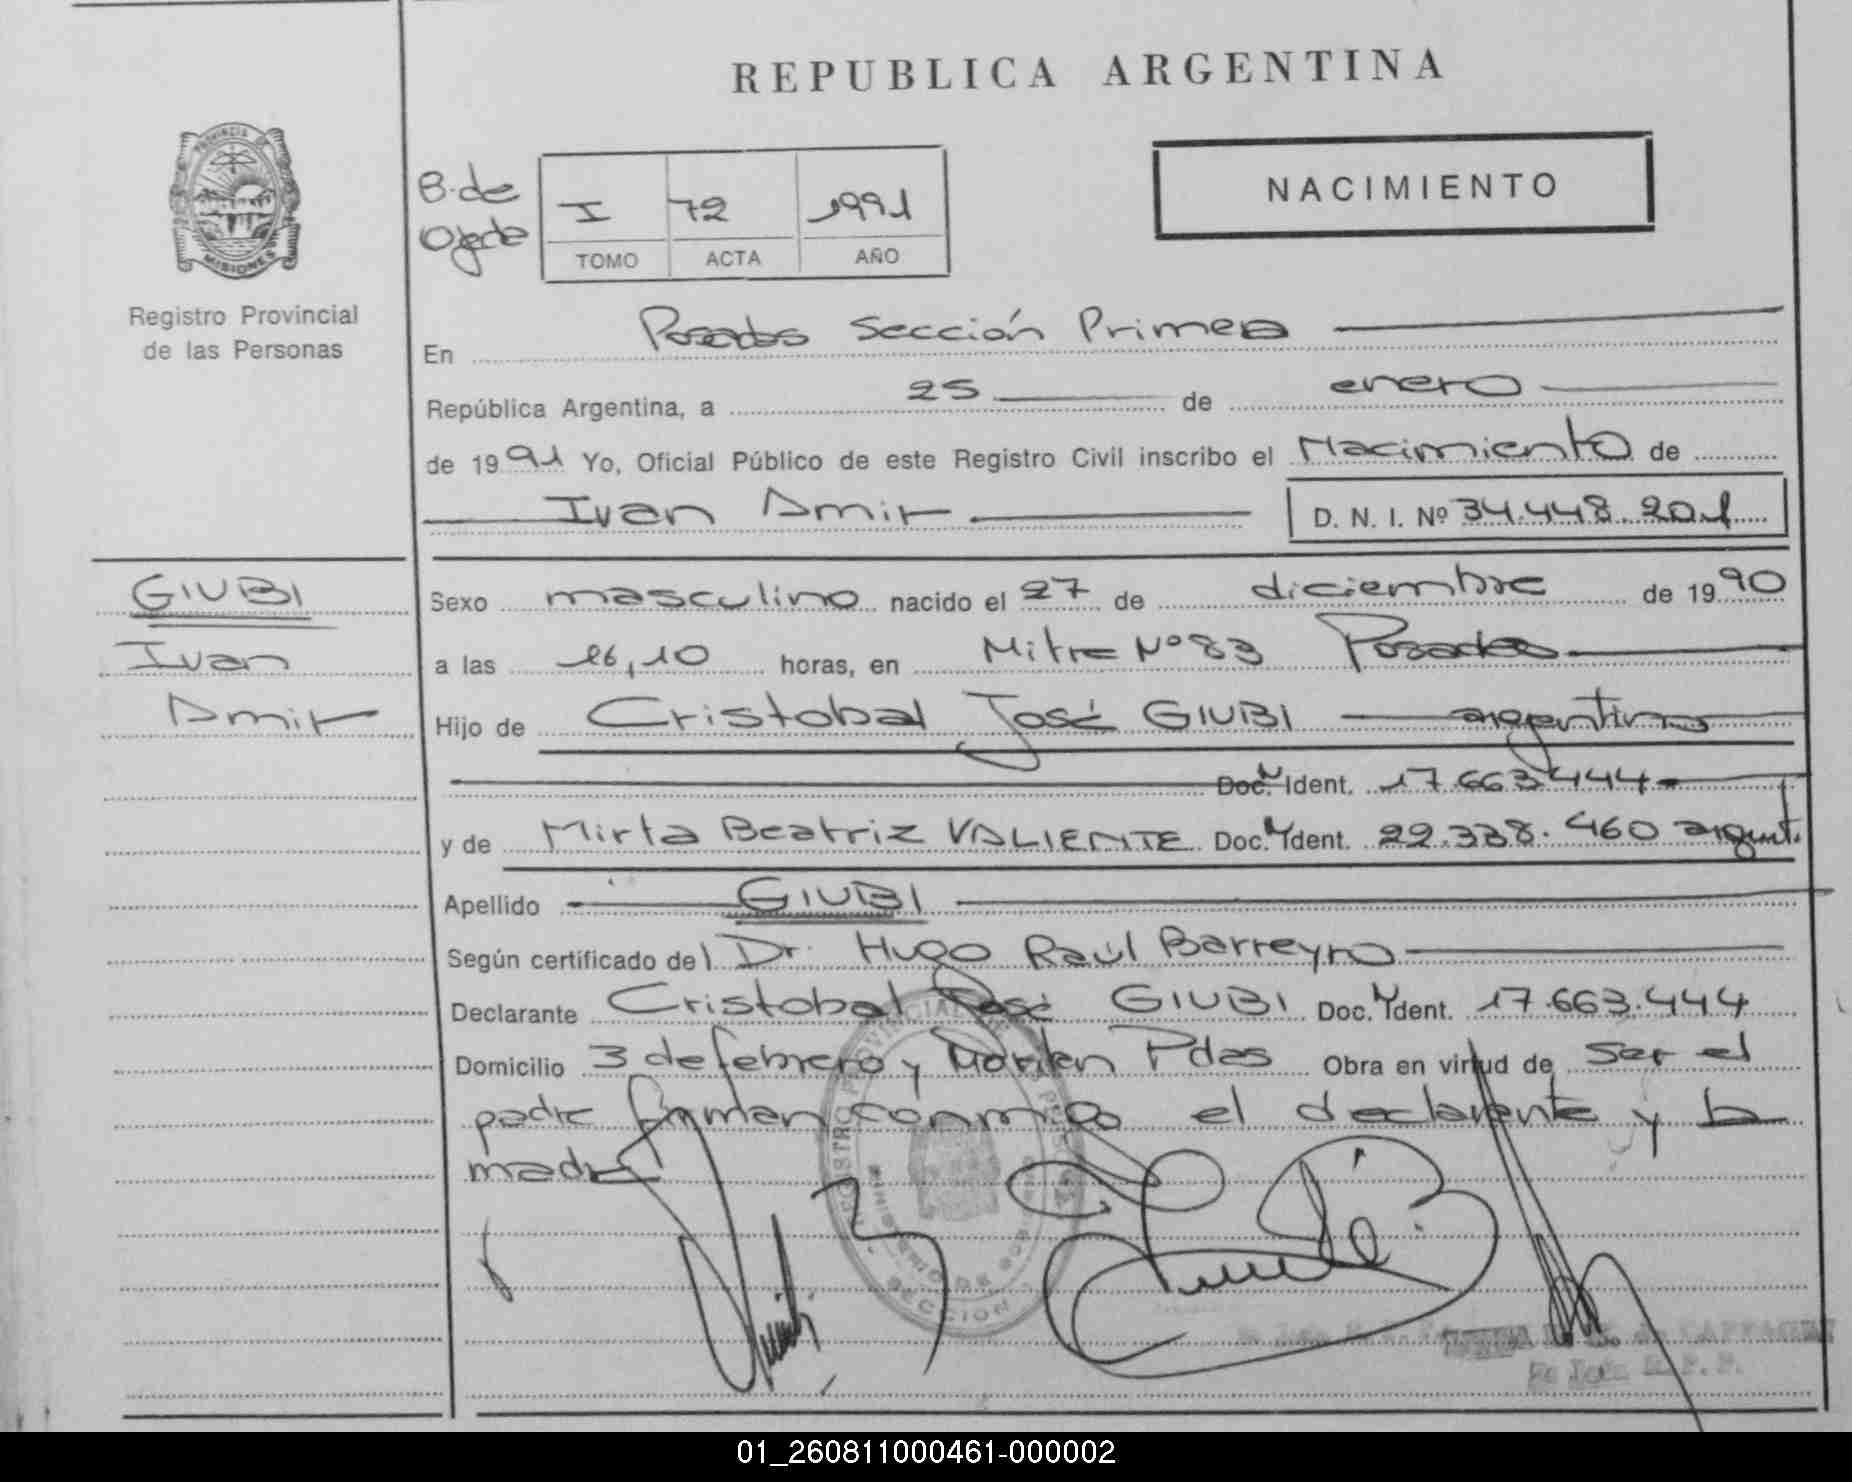 REPUBLICA ARGENTINA
PROVINCIA DE
MISIONES
Registro Provincial
de las Personas
B. de
I 72 1991
TOMO ACTA AÑO
NACIMIENTO
En Posadas Sección Primera
República Argentina, a 25 de enero
de 1991 Yo, Oficial Público de este Registro Civil inscribo el Nacimiento de
Ivan Amir D. N. I. Nº 34.448.201
GIUBI
Ivan
Amir
Sexo masculino nacido el 27 de diciembre de 1990
a las 16,10 horas, en Mitre Nº 83 Posadas
Hijo de Cristobal José GIUBI argentino
Doc. Ident. 17.663.444
y de Mirta Beatriz VALIENTE Doc. Ident. 22.338.460 argent.
Apellido GIUBI
Según certificado del Dr. Hugo Raúl Barreyro
Declarante Cristobal José GIUBI Doc. Ident. 17.663.444
Domicilio 3 de febrero y Pdas Obra en virtud de Ser el
padre firman conmigo el declarante y la
madre
REGISTRO PROVINCIAL DE LAS PERSONAS
MINISTERIO DE GOBIERNO
SECCION
01_260811000461-000002